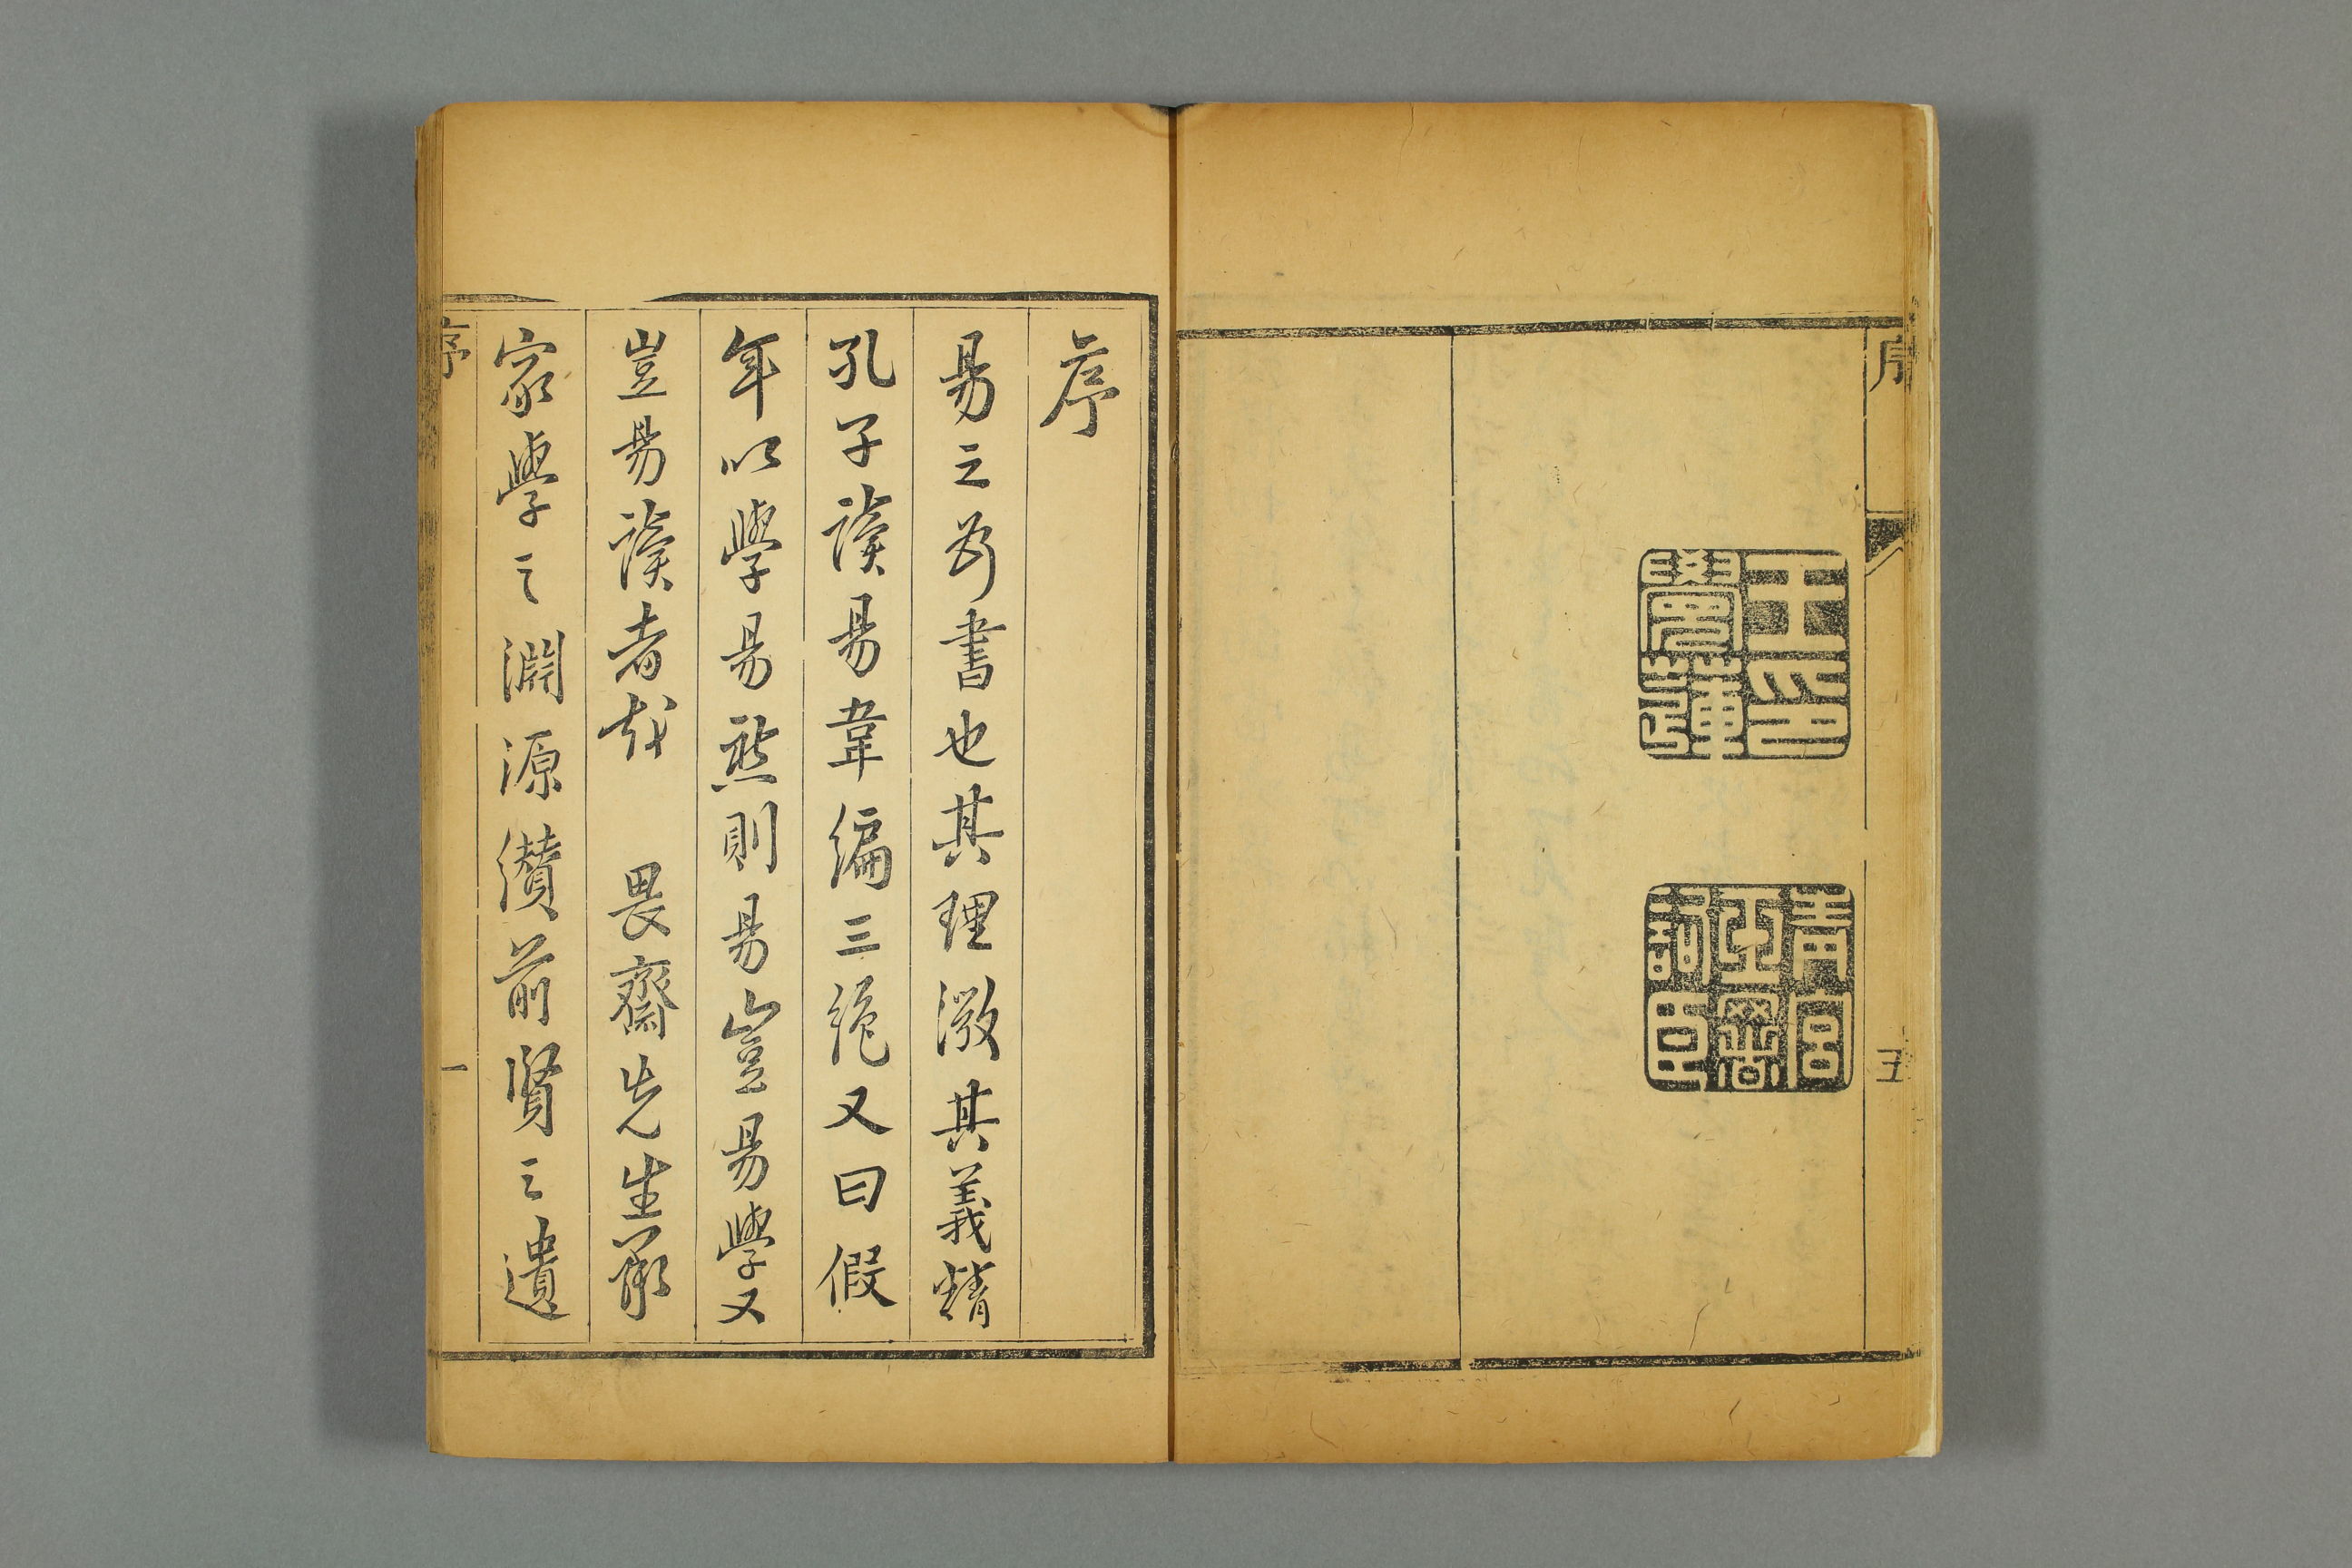 序
五
王印覺蓮
青宮
詞臣
序
易之為書也其理微其義精
孔子讀易韋編三絕又曰假
年以學易然則易豈易學又
豈易讀者哉　畏齋先生承
家學之淵源纘前賢之遺
序
一